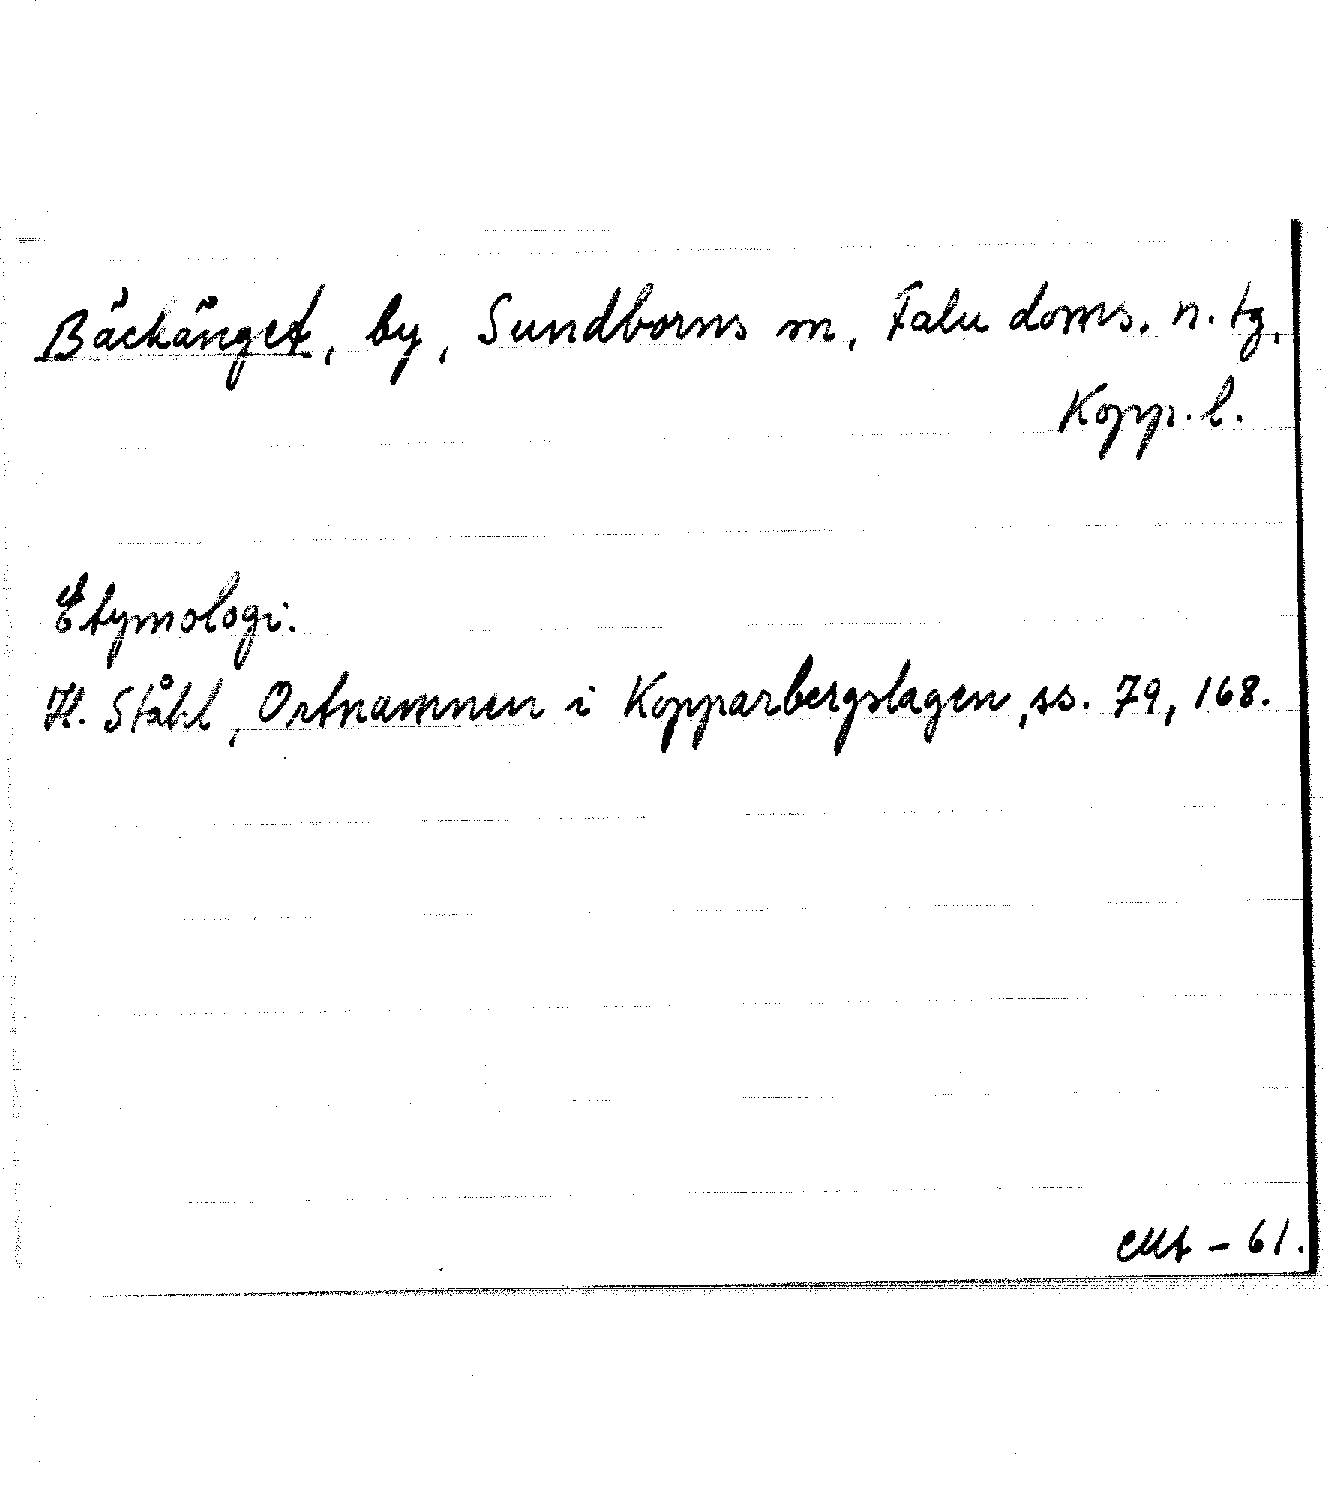 Bäckänget, by, Sundborns sn, Falu doms. n. tg,
Kopp. l.
Etymologi.
H. Ståhl, Ortnamnen i Kopparbergslagen, ss. 79, 168.
- 61.